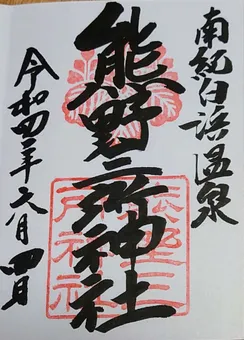 南紀白浜温泉
熊野三所神社
令和四年六月四日
熊野三所神社